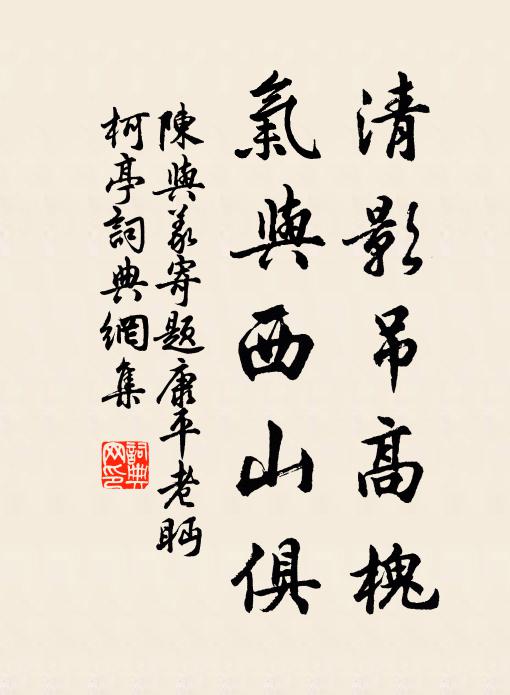 清影吊高槐
氣與西山俱
陳與義寄題康平老眄
柯亭詞典網集
詞典
网印